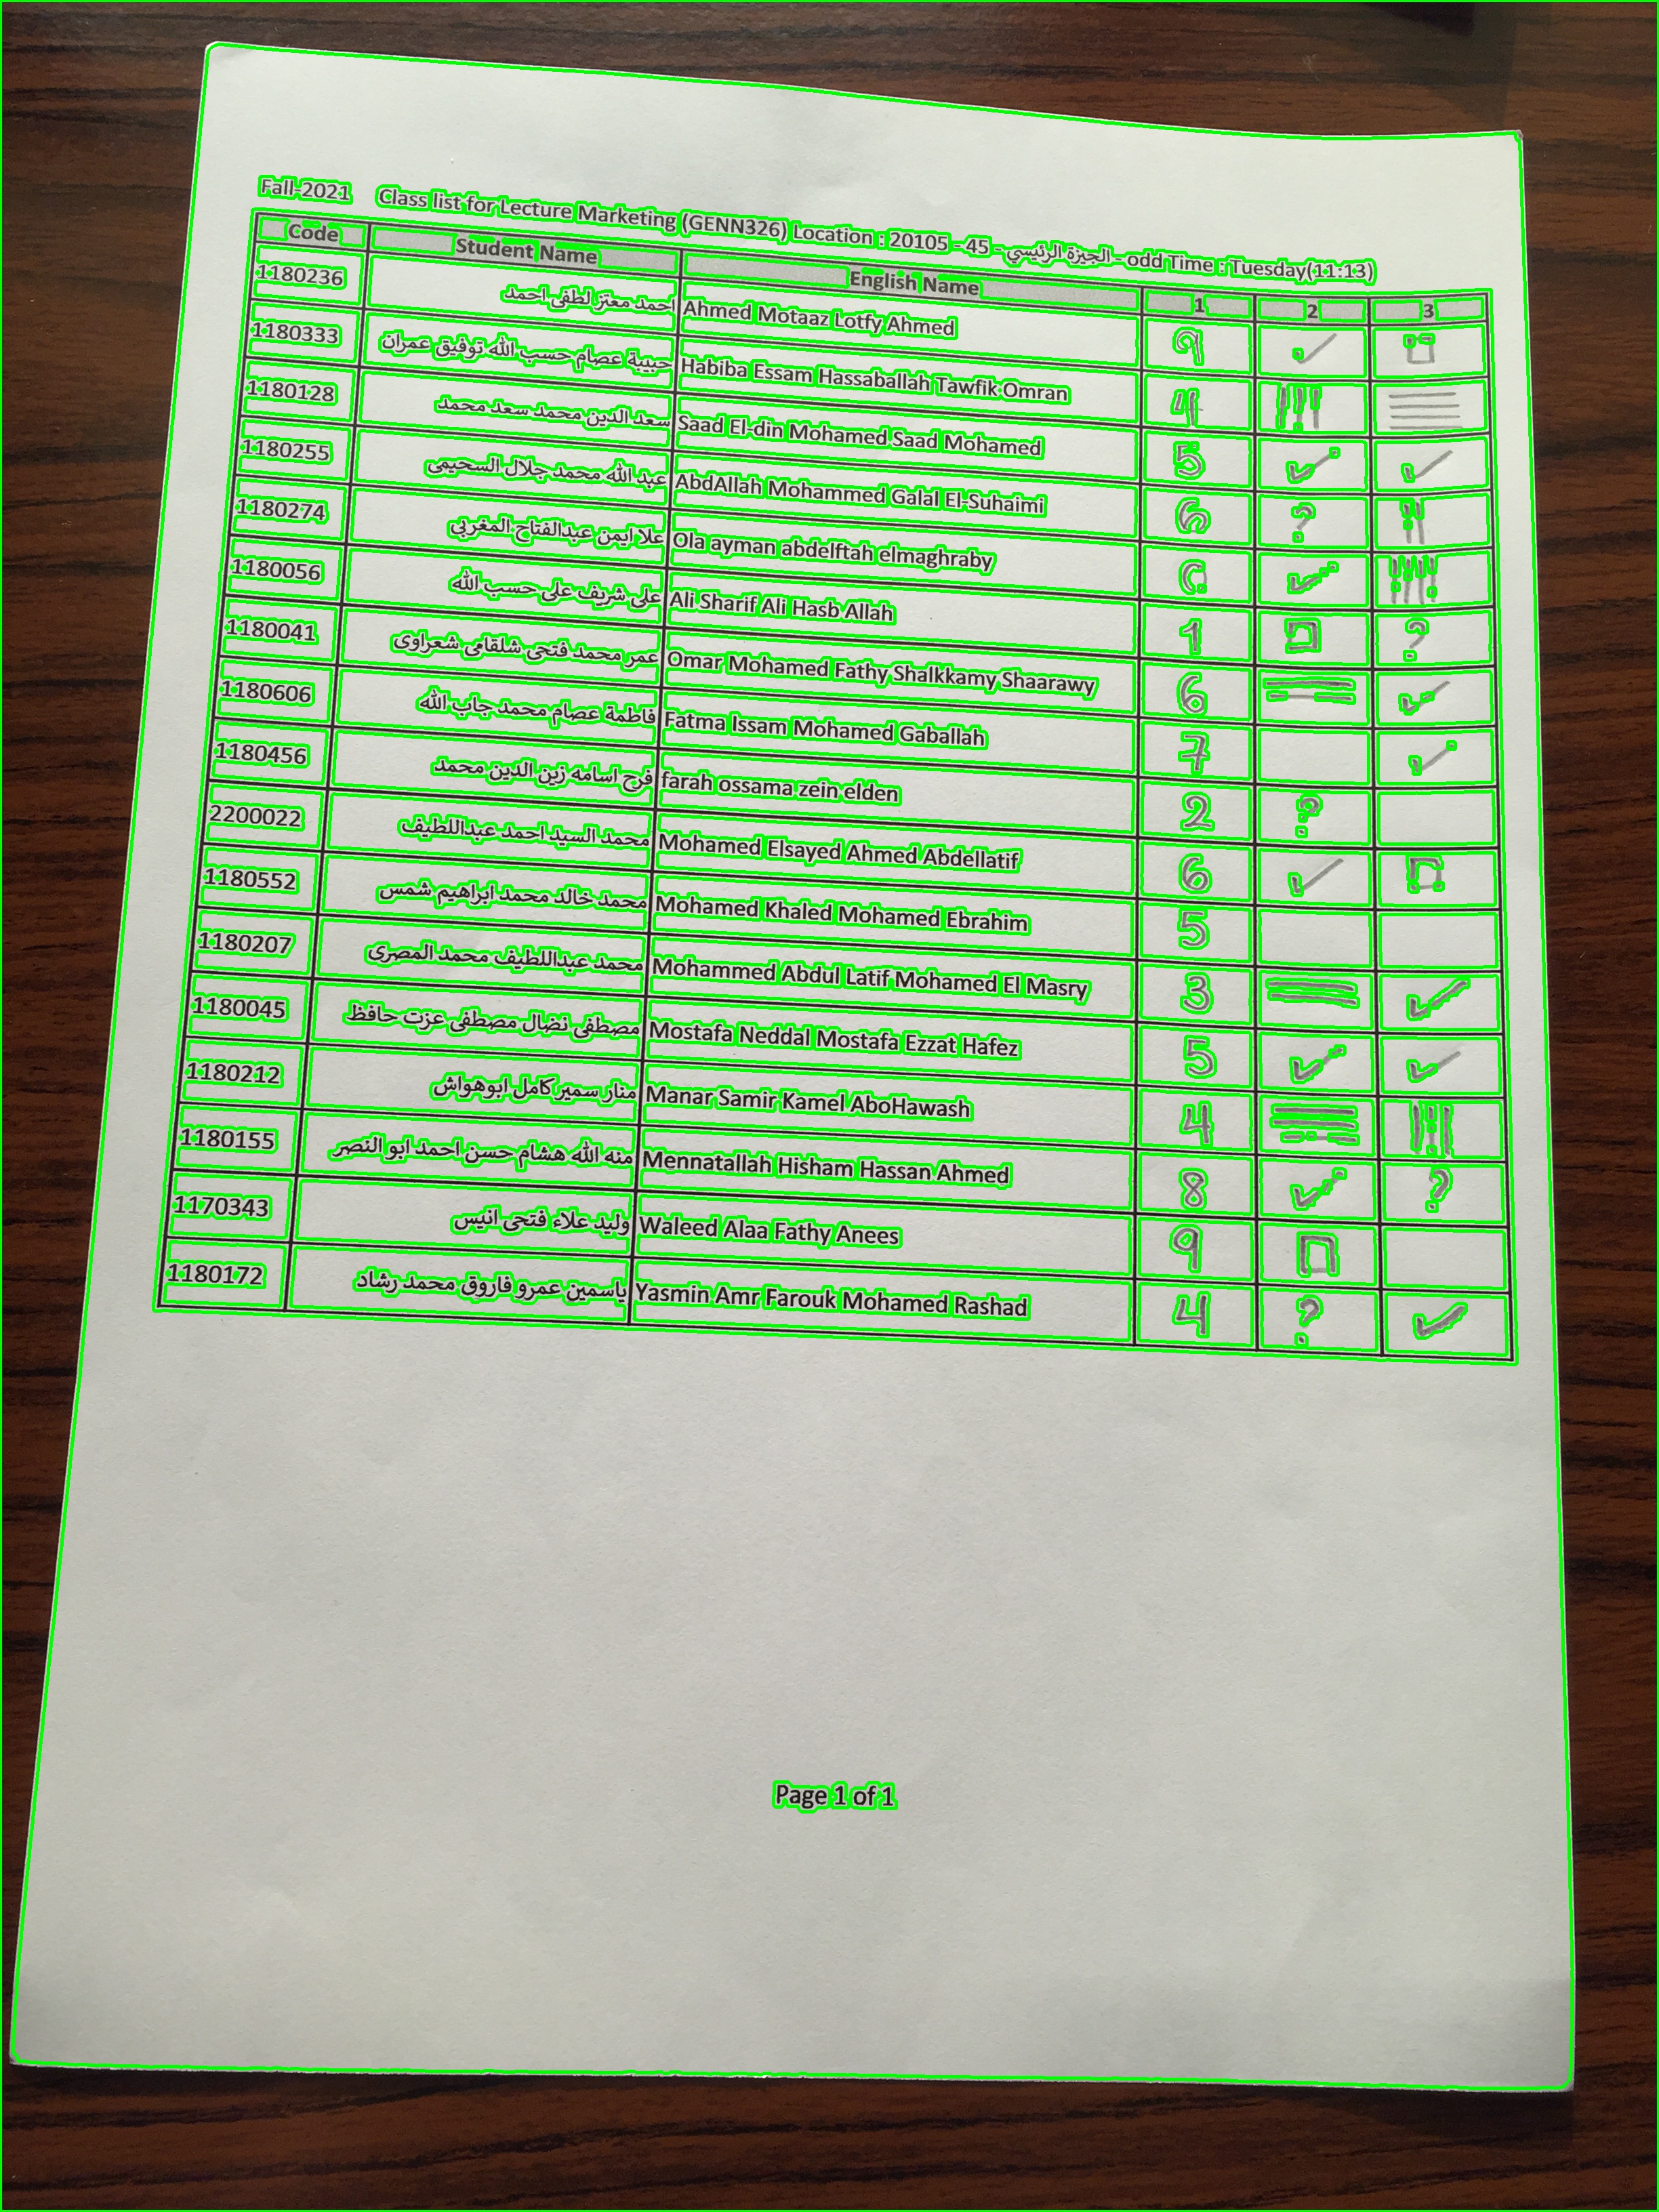 Fall-2021 Class list for Lecture Marketing (GENN326) Location : 20105 - 45 - الجيزة الرئيسي - odd Time : Tuesday(11:13)
Code Student Name English Name 1 2 3
1180236 احمد معتز لطفى احمد Ahmed Motaaz Lotfy Ahmed 9 ✓ □
1180333 حبيبة عصام حسب الله توفيق عمران Habiba Essam Hassaballah Tawfik Omran 4 |||
1180128 سعد الدين محمد سعد محمد Saad El-din Mohamed Saad Mohamed 5 ✓ ✓
1180255 عبد الله محمد جلال السحيمى AbdAllah Mohammed Galal El-Suhaimi 6 ? ||
1180274 علا ايمن عبدالفتاح المغربي Ola ayman abdelftah elmaghraby ✓ ||||
1180056 على شريف على حسب الله Ali Sharif Ali Hasb Allah 1 □ ?
1180041 عمر محمد فتحى شلقامى شعراوى Omar Mohamed Fathy Shalkkamy Shaarawy 6 ✓
1180606 فاطمة عصام محمد جاب الله Fatma Issam Mohamed Gaballah 7 ✓
1180456 فرح اسامه زين الدين محمد farah ossama zein elden 2 ?
2200022 محمد السيد احمد عبداللطيف Mohamed Elsayed Ahmed Abdellatif 6 ✓ □
1180552 محمد خالد محمد ابراهيم شمس Mohamed Khaled Mohamed Ebrahim 5
1180207 محمد عبداللطيف محمد المصرى Mohammed Abdul Latif Mohamed El Masry 3 ✓
1180045 مصطفى نضال مصطفى عزت حافظ Mostafa Neddal Mostafa Ezzat Hafez 5 ✓ ✓
1180212 منار سمير كامل ابوهواش Manar Samir Kamel AboHawash 4 |||
1180155 منه الله هشام حسن احمد ابو النصر Mennatallah Hisham Hassan Ahmed 8 ✓ ?
1170343 وليد علاء فتحى انيس Waleed Alaa Fathy Anees 9 □
1180172 ياسمين عمرو فاروق محمد رشاد Yasmin Amr Farouk Mohamed Rashad 4 ? ✓
Page 1 of 1